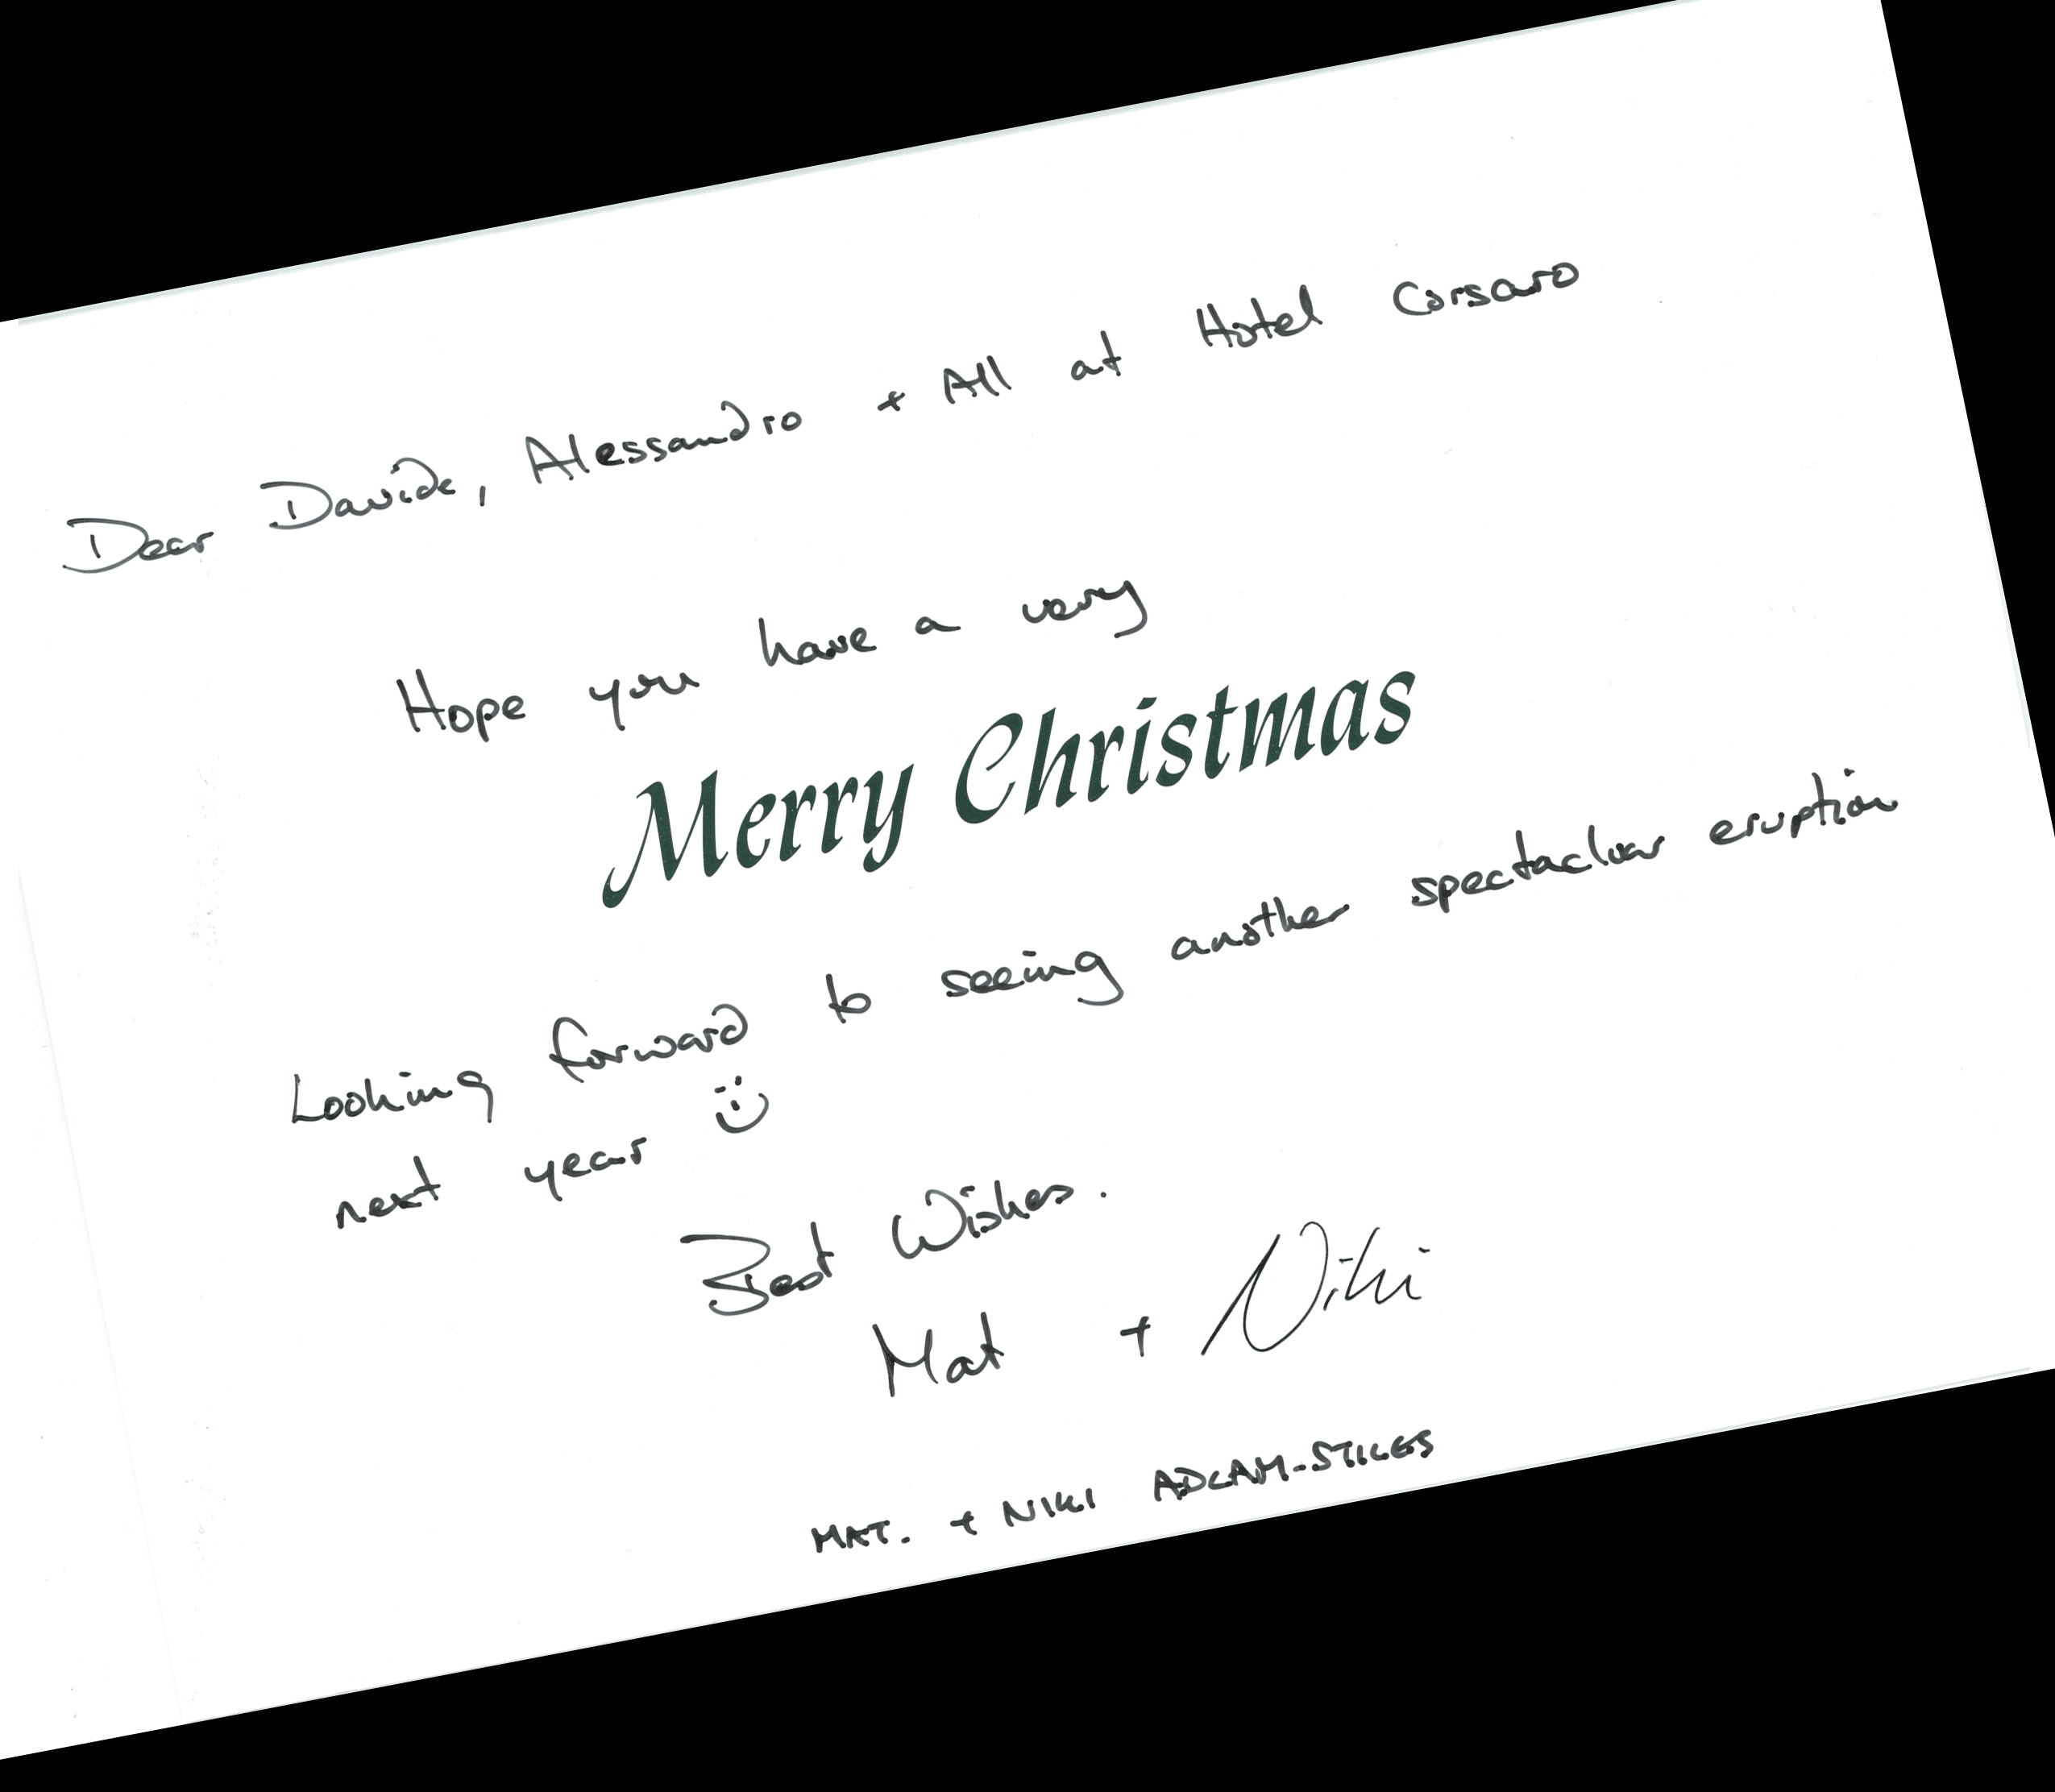 Dear Davide, Alessandro + All at Hotel Corsaro
Hope you have a very
Merry Christmas
Looking forward to seeing another spectacluar eruption
next year
Best Wishes.
Mat + Niki
MAT. + NIKI ADLAM-STILES